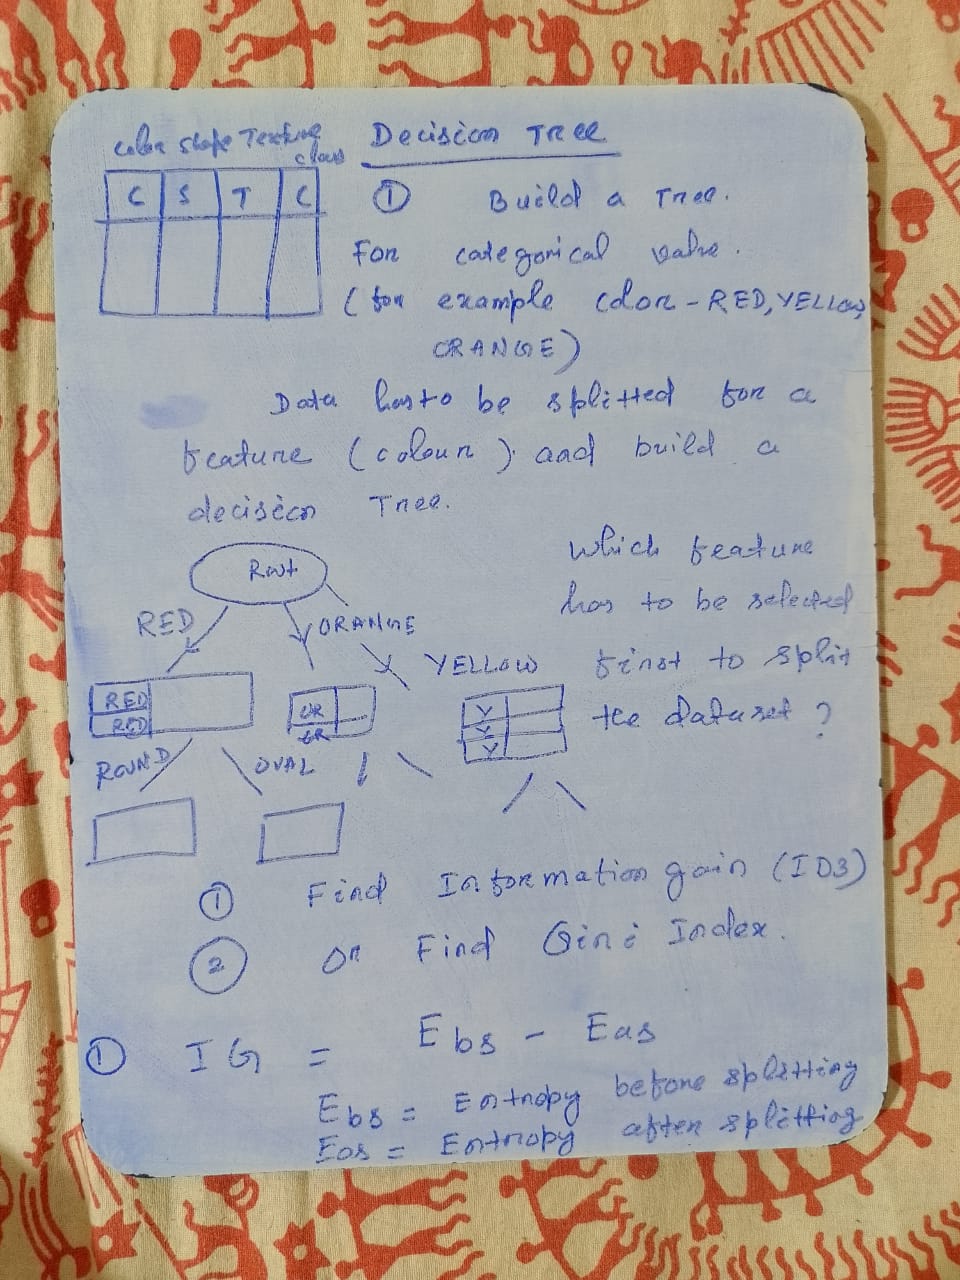 Color Shape Texture
class
Decision Tree
C S T C
① Build a Tree.
For categorical value.
(for example color - RED, YELLOW,
ORANGE)
Data has to be splitted for a
feature (colour) and build a
decision Tree.
Root
RED
ORANGE
YELLOW
RED
RED
OR
OR
Y
Y
Y
ROUND
OVAL
Which feature
has to be selected
first to split
the dataset ?
① Find Information gain (ID3)
② Or Find Gini Index.
① IG = Ebs - Eas
Ebs = Entropy before splitting
Eas = Entropy after splitting